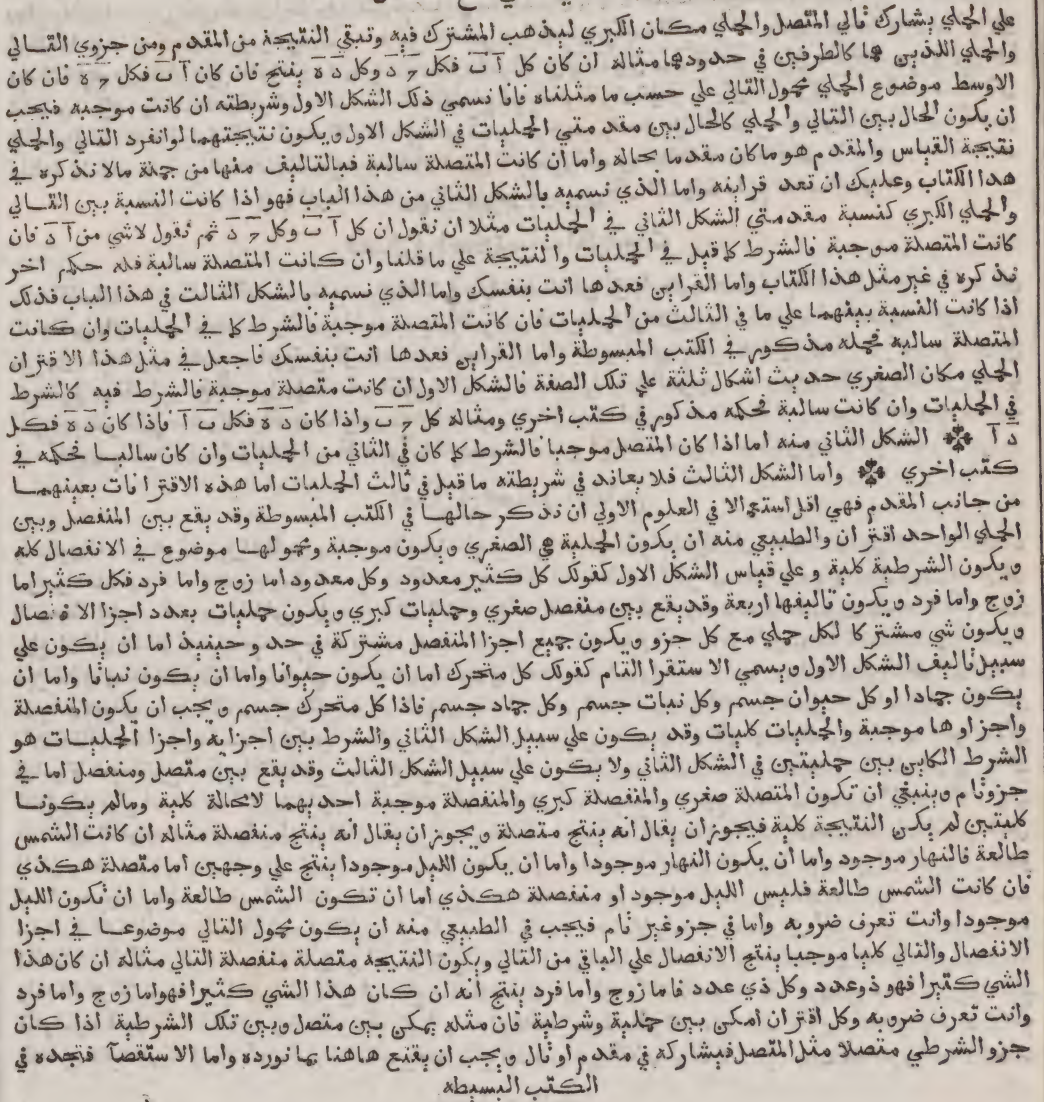 علي الحملي يشارك تالي المتصل والحملي مكان الكبري ليذهب المشترك فيه وتبقي النتيجة من المقدم ومن جزوي التالي
والحملي اللذين هما كالطرفين في حدودهما مثاله ان كان كل آ ب فكل ج د وكل د ه ينتج فان كان آ ب فكل ج ه فان كان
الاوسط موضوع الحملي محمول التالي علي حسب ما مثلناه فانا نسمي ذلك الشكل الاول وشريطته ان كانت موجبه فيجب
ان يكون الحال بين التالي والحملي كالحال بين مقدمتي الحمليات في الشكل الاول ويكون نتيجتهما لو انفرد التالي والحملي
نتيجة القياس والمقدم هو ما كان مقدما بحاله واما ان كانت المتصلة سالبة فبالتاليف منها من جملة مالا نذكره في
هدا الكتاب وعليك ان تعد قراينه واما الذي نسميه بالشكل الثاني من هذا الباب فهو اذا كانت النسبة بين التالي
والحملي الكبري كنسبة مقدمتي الشكل الثاني في الحمليات مثلا ان نقول ان كل آ ب وكل ج د ثم نقول لا شي من آ د فان
كانت المتصلة موجبة فالشرط كما قيل في الحمليات والنتيجة علي ما قلنا وان كانت المتصلة سالبة فله حكم اخر
نذكره في غير مثل هذا الكتاب واما القراين فعدها انت بنفسك واما الذي نسميه بالشكل الثالث في هذا الباب فذلك
اذا كانت النسبة بينهما علي ما في الثالث من الحمليات فان كانت المتصلة موجبة فالشرط كما في الحمليات وان كانت
المتصلة سالبه فحمله مذكور في الكتب المبسوطة واما القراين فعدها انت بنفسك فاجعل في مثل هذا الاقتران
الحملي مكان الصغري حديث اشكال ثلثة علي تلك الصفة فالشكل الاول ان كانت متصلة موجبة فالشرط فيه كالشرط
في الحمليات وان كانت سالبة فحكمه مذكور في كتب اخري ومثاله كل ج ب واذا كان د ه فكل ب آ فاذا كان د ه فكل
د آ ۞ الشكل الثاني منه اما اذا كان المتصل موجبا فالشرط كما كان في الثاني من الحمليات وان كان سالبا فحكمه في
كتب اخري ۞ واما الشكل الثالث فلا يعاند في شريطته ما قيل في ثالث الحمليات اما هذه الاقترانات بعينهما
من جانب المقدم فهي اقل استعمالا في العلوم الاولي ان نذكر حالها في الكتب المبسوطة وقد يقع بين المنفصل وبين
الحملي الواحد اقتران والطبيعي منه ان يكون الحملية هي الصغري ويكون موجبة ومحمولها موضوع في الانفصال كله
ويكون الشرطية كلية وعلي قياس الشكل الاول كقولك كل كثير معدود وكل معدود اما زوج واما فرد فكل كثير اما
زوج واما فرد ويكون تاليفها اربعة وقد يقع بين منفصل صغري وحمليات كبري ويكون حمليات بعدد اجزا الانفصال
ويكون شي مشتركا لكل حملي مع كل جزو ويكون جميع اجزا المنفصل مشتركة في حد وحينيذ اما ان يكون علي
سبيل تاليف الشكل الاول ويسمي الاستقرا التام كقولك كل متحرك اما ان يكون حيوانا واما ان يكون نباتا واما ان
يكون جمادا او كل حيوان جسم وكل نبات جسم وكل جماد جسم فاذا كل متحرك جسم ويجب ان يكون المنفصلة
واجزاوها موجبة والحمليات كليات وقد يكون علي سبيل الشكل الثاني والشرط بين اجزايه واجزا الحمليات هو
الشرط الكاين بين حمليتين في الشكل الثاني ولا يكون علي سبيل الشكل الثالث وقد يقع بين متصل ومنفصل اما في
جزو تام وينبقي ان تكون المتصلة صغري والمنفصلة كبري والمنفصلة موجبة احديهما لا محالة كلية وما لم يكونا
كليتين لم يكن النتيجة كلية فيجوز ان يقال انه ينتج متصلة ويجوز ان يقال انه ينتج منفصلة مثاله ان كانت الشمس
طالعة فالنهار موجود واما ان يكون النهار موجودا واما ان يكون الليل موجودا ينتج علي وجهين اما متصلة هكذي
فان كانت الشمس طالعة فليس الليل موجود او منفصلة هكذي اما ان تكون الشمس طالعة واما ان تكون الليل
موجودا وانت تعرف ضروبه واما في جزو غير تام فيجب في الطبيعي منه ان يكون محمول التالي موضوعا في اجزا
الانفصال والتالي كليا موجبا ينتج الانفصال علي الباقي من التالي ويكون النتيجه متصلة منفصلة التالي مثاله ان كان هذا
الشي كثيرا فهو ذو عدد وكل ذي عدد فاما زوج واما فرد ينتج انه ان كان هذا الشي كثيرا فهو اما زوج واما فرد
وانت تعرف ضروبه وكل اقتران امكن بين حملية وشرطية فان مثله يمكن بين متصل وبين تلك الشرطية اذا كان
جزو الشرطي متصلا مثل المتصل فيشاركه في مقدم او تال ويجب ان يقنع هاهنا بما نورده واما الاستقصآ فتجده في
الكتب البسيطه